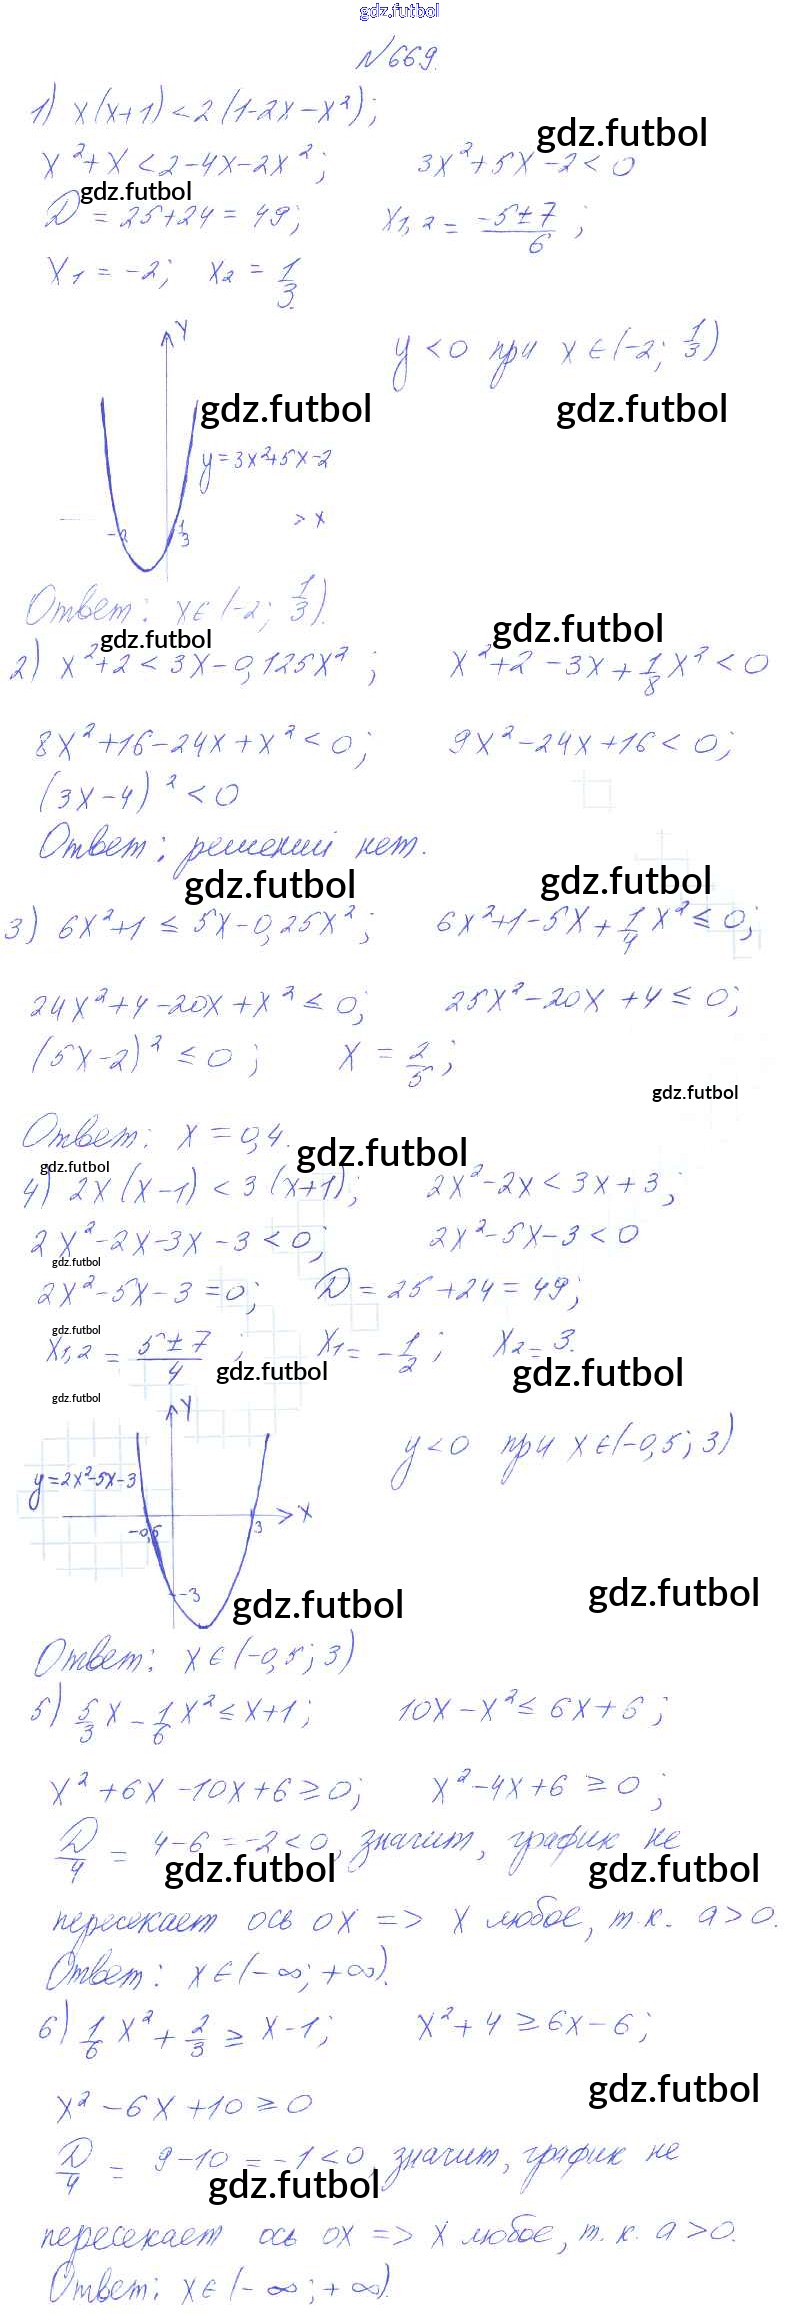 gdz.futbol
N 669.
1) x(x+1) < 2(1-2x-x²);
gdz.futbol
x²+x < 2-4x-2x²; 3x²+5x-2 < 0
gdz.futbol
D = 25+24 = 49; x1,2 = (-5±7)/6 ;
x1 = -2; x2 = 1/3.
y
y < 0 при x ∈ (-2; 1/3)
gdz.futbol gdz.futbol
y = 3x²+5x-2
-2 1/3 x
Ответ: x ∈ (-2; 1/3).
gdz.futbol gdz.futbol
2) x²+2 < 3x-0,125x² ; x²+2-3x+1/8x² < 0
8x²+16-24x+x² < 0; 9x²-24x+16 < 0;
(3x-4)² < 0
Ответ: решений нет.
gdz.futbol gdz.futbol
3) 6x²+1 ≤ 5x-0,25x²; 6x²+1-5x+1/4x² ≤ 0;
24x²+4-20x+x² ≤ 0; 25x²-20x+4 ≤ 0;
(5x-2)² ≤ 0; x = 2/5;
gdz.futbol
Ответ: x = 0,4.
gdz.futbol gdz.futbol
4) 2x(x-1) < 3(x+1); 2x²-2x < 3x+3;
2x²-2x-3x-3 < 0; 2x²-5x-3 < 0
gdz.futbol
2x²-5x-3 = 0; D = 25+24 = 49;
gdz.futbol
x1,2 = (5±7)/4 ; x1 = -1/2 ; x2 = 3.
gdz.futbol gdz.futbol
gdz.futbol
y
y < 0 при x ∈ (-0,5; 3)
y = 2x²-5x-3
-0,5 3 x
-3
gdz.futbol gdz.futbol
Ответ: x ∈ (-0,5; 3)
5) 5/3x - 1/6x² ≤ x+1; 10x-x² ≤ 6x+6;
x²+6x-10x+6 ≥ 0; x²-4x+6 ≥ 0;
D/4 = 4-6 = -2 < 0, значит, график не
gdz.futbol gdz.futbol
пересекает ось ох => x любое, т.к. a > 0.
Ответ: x ∈ (-∞; +∞).
6) 1/6x² + 2/3 ≥ x-1; x²+4 ≥ 6x-6;
gdz.futbol
x²-6x+10 ≥ 0
D/4 = 9-10 = -1 < 0, значит, график не
gdz.futbol
пересекает ось ох => x любое, т.к. a > 0.
Ответ: x ∈ (-∞; +∞).